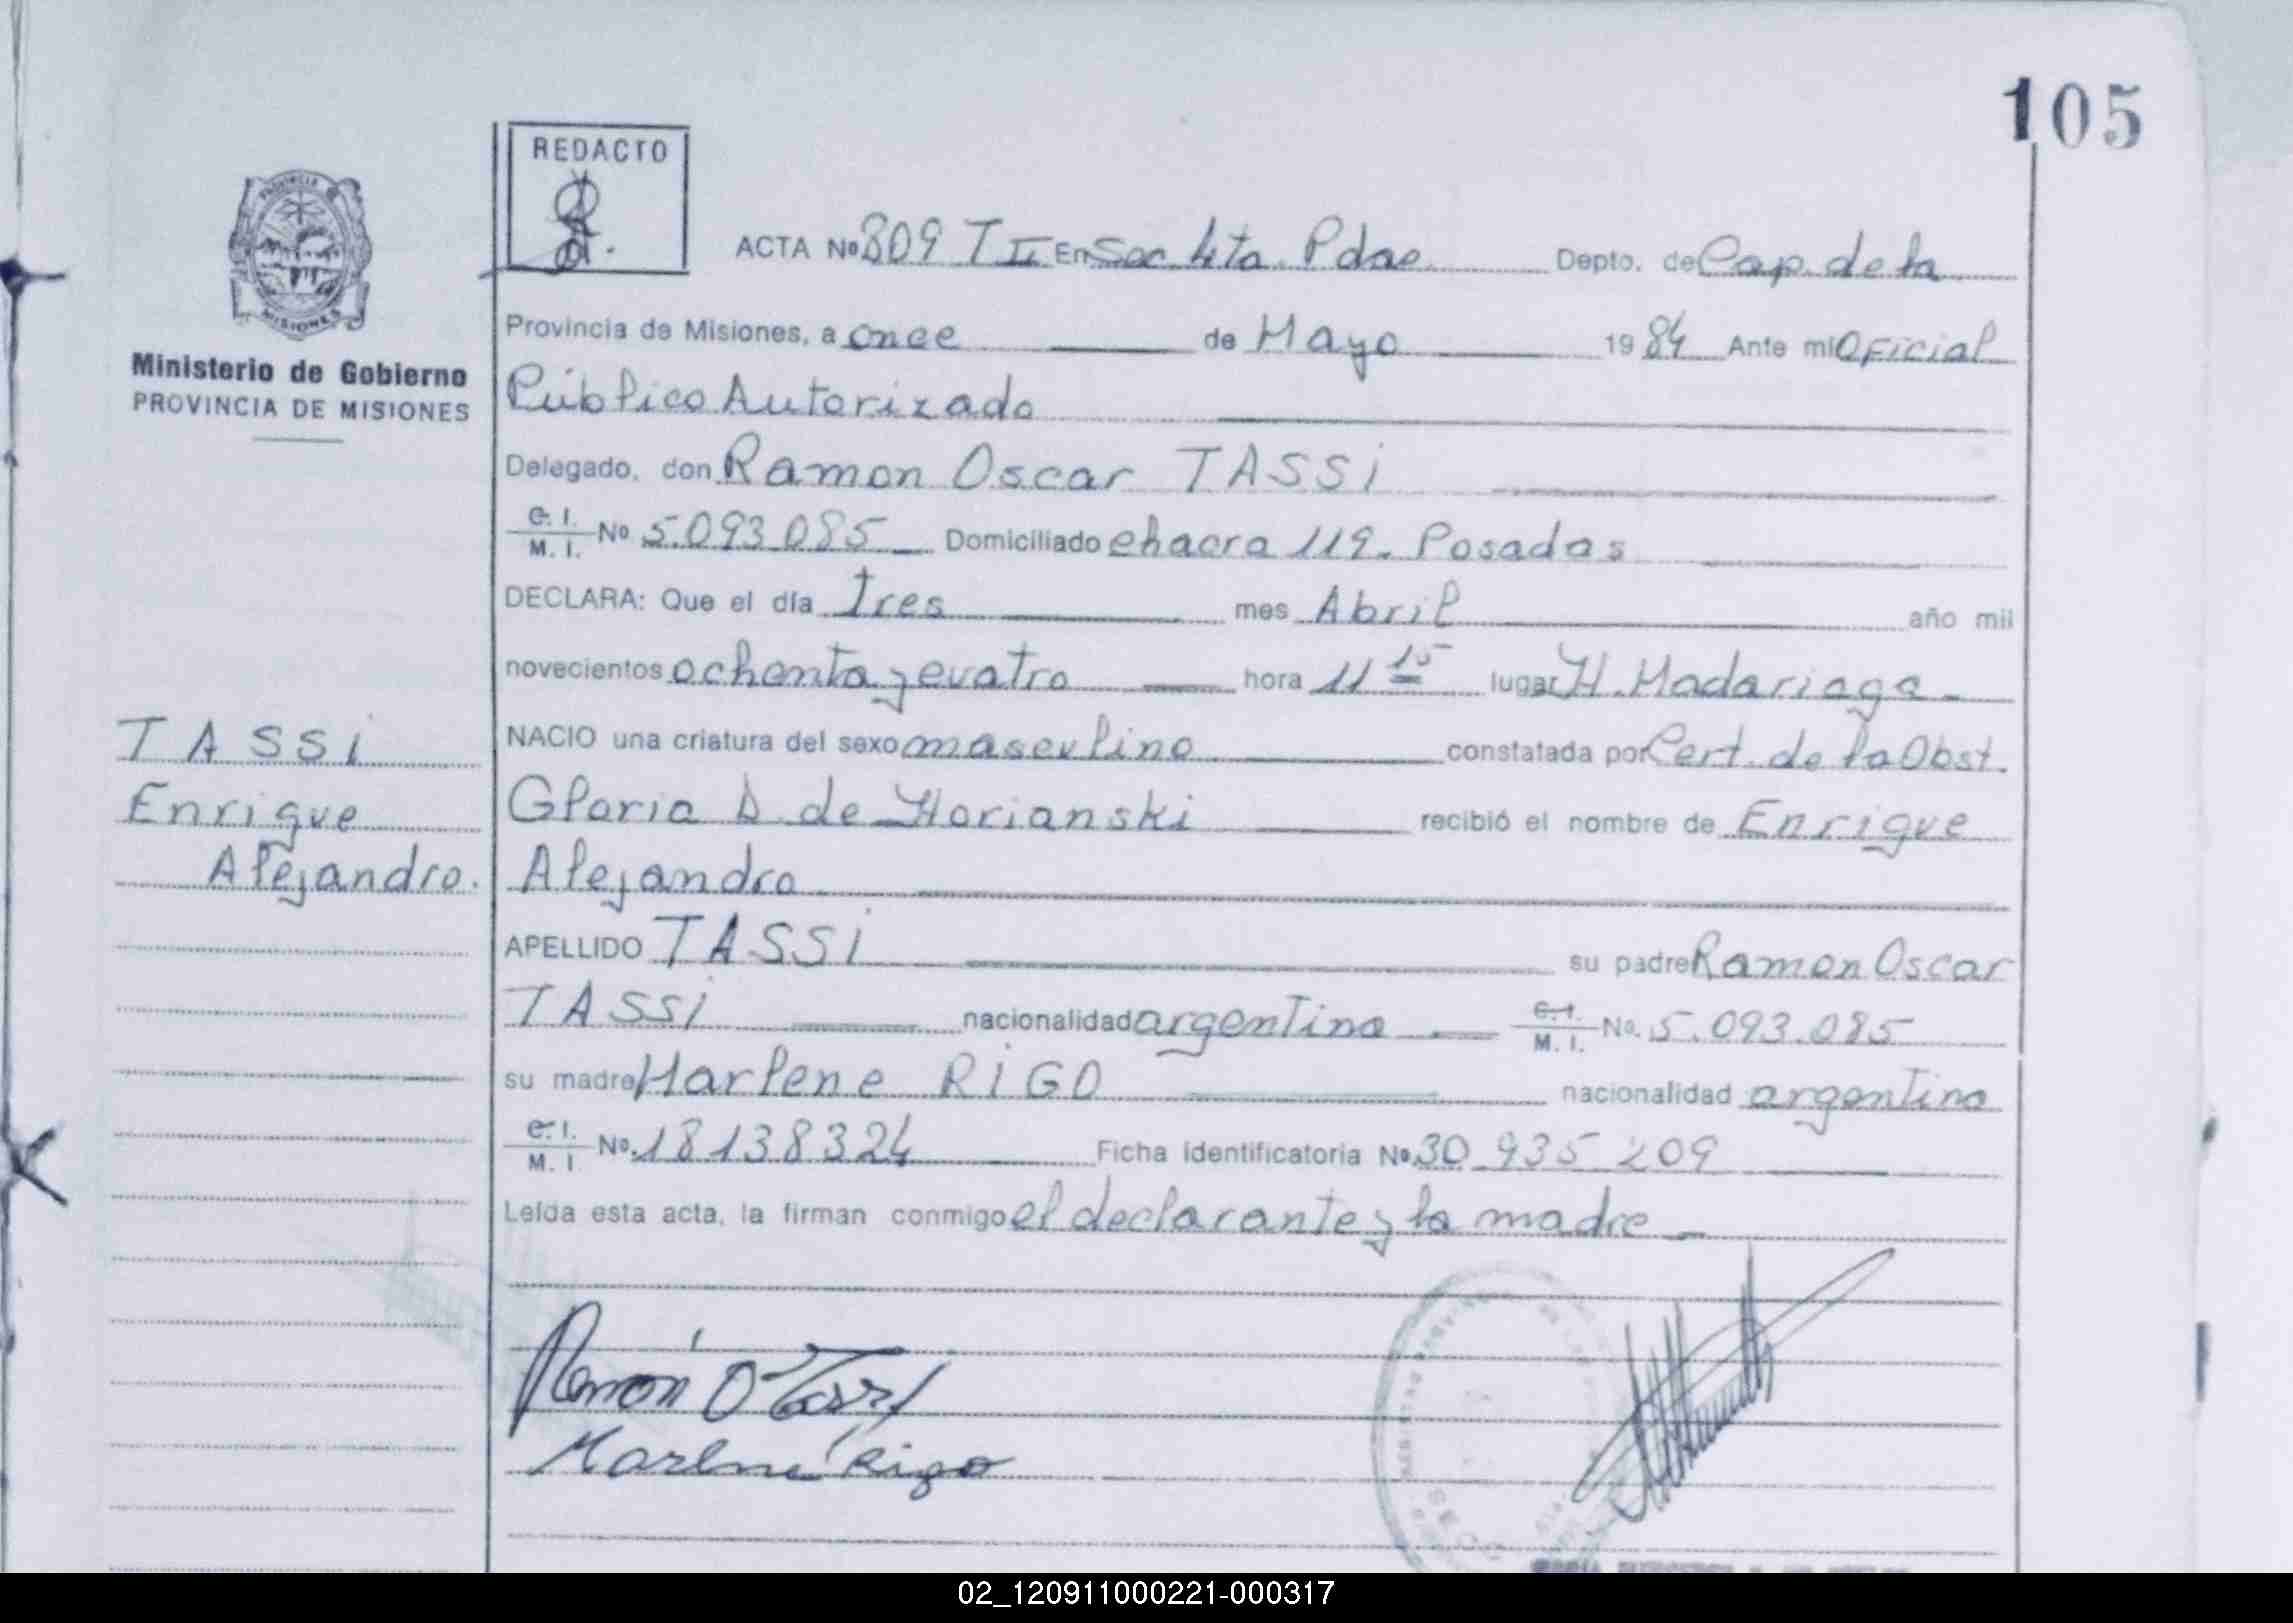 105
REDACTO
PROVINCIA
MISIONES
Ministerio de Gobierno
PROVINCIA DE MISIONES
ACTA Nº 809 T II En Sec 4ta. Pdas Depto. de Cap. de la
Provincia de Misiones, a once de Mayo 1984 Ante mi Oficial
Público Autorizado
Delegado, don Ramon Oscar TASSi
C. I. M. I. Nº 5.093.085 Domiciliado chacra 119. Posadas
DECLARA: Que el día Tres mes Abril año mil
novecientos ochenta y cuatro hora 11 15 lugar H. Madariaga
NACIO una criatura del sexo masculino constatada por Cert. de la Obst.
Gloria D. de Horianski recibió el nombre de Enrique
Alejandro
APELLIDO TASSi su padre Ramon Oscar
TASSi nacionalidad argentina C. I. M. I. No. 5.093.085
su madre Marlene RiGO nacionalidad argentina
C. I. M. I No. 18138324 Ficha Identificatoria Nº 30 935 209
Leída esta acta, la firman conmigo el declarante y la madre
TASSi
Enrique
Alejandro.
Ramón O Tassi
Marlene Rigo
02_120911000221-000317